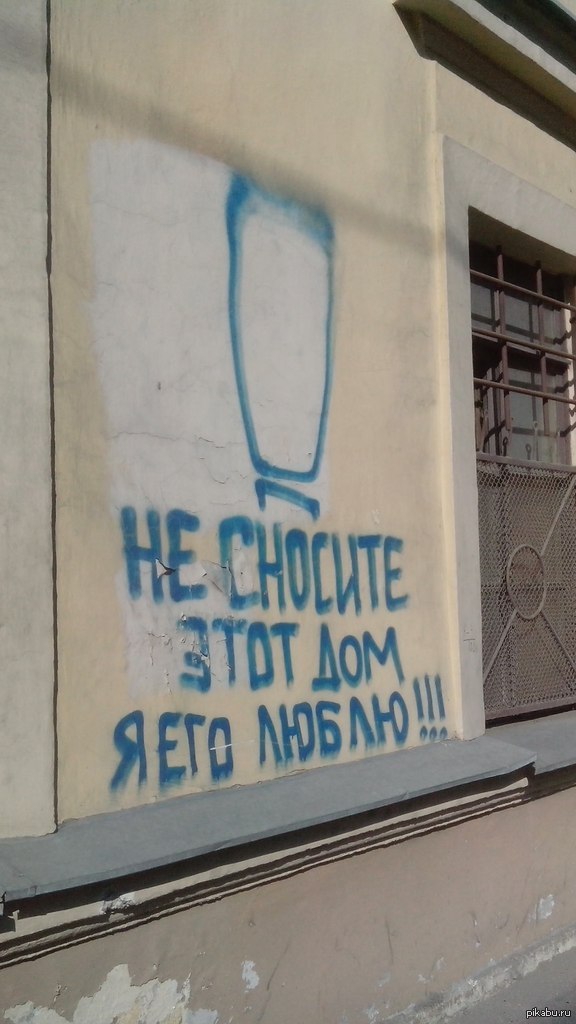 НЕ СНОСИТЕ
ЭТОТ ДОМ
Я ЕГО ЛЮБЛЮ!!!
pikabu.ru